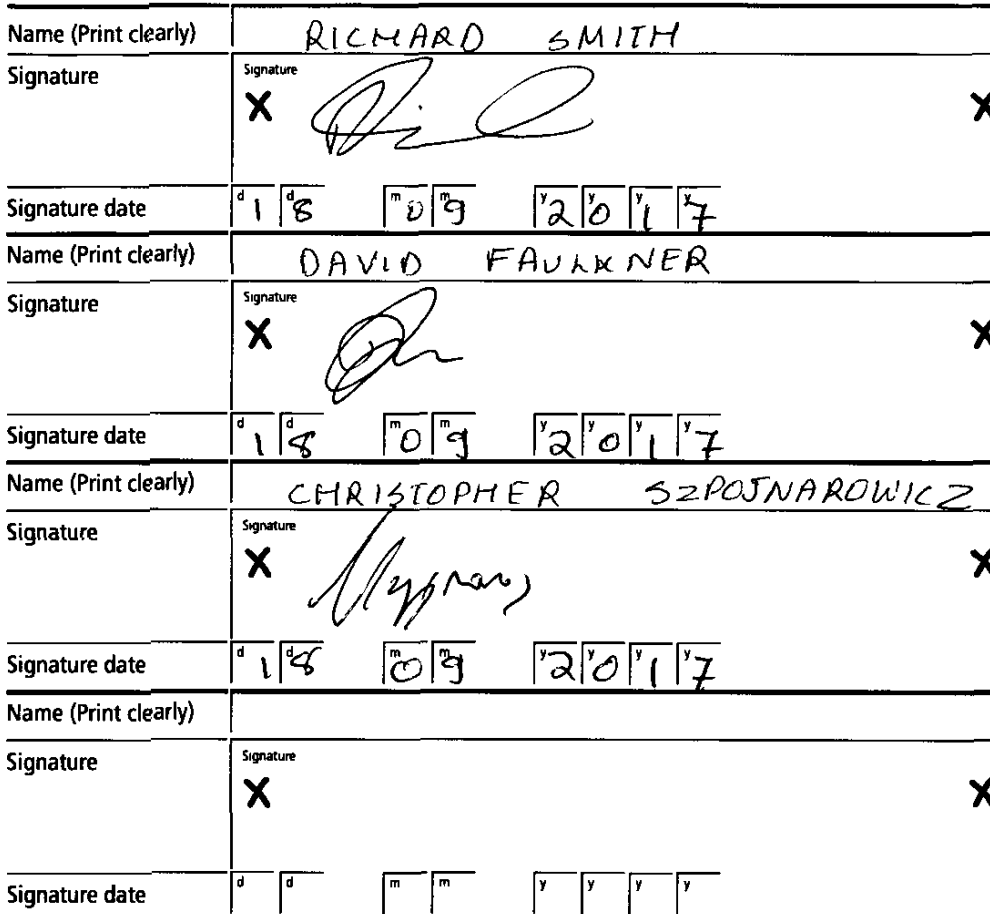 Name (Print clearly) RICHARD SMITH
Signature Signature
X X
Signature date d1 d8 m0 m9 y2 y0 y1 y7
Name (Print clearly) DAVID FAULKNER
Signature Signature
X X
Signature date d1 d8 m0 m9 y2 y0 y1 y7
Name (Print clearly) CHRISTOPHER SZPOJNAROWICZ
Signature Signature
X X
Signature date d1 d8 m0 m9 y2 y0 y1 y7
Name (Print clearly)
Signature Signature
X X
Signature date d d m m y y y y